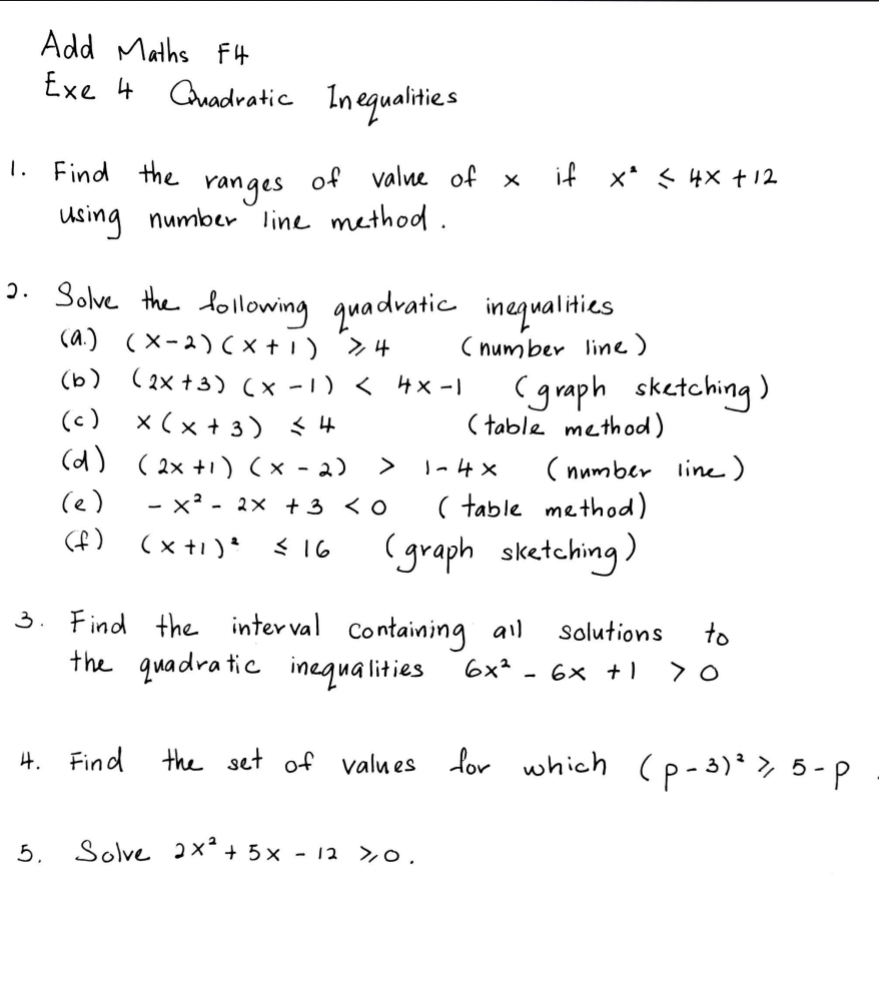 Add Maths F4
Exe 4 Quadratic Inequalities
1. Find the ranges of value of x if x² ≤ 4x + 12
using number line method.
2. Solve the following quadratic inequalities
(a.) (x-2)(x+1) ≥ 4 (number line)
(b) (2x+3)(x-1) < 4x-1 (graph sketching)
(c) x(x+3) ≤ 4 (table method)
(d) (2x+1)(x-2) > 1-4x (number line)
(e) -x² - 2x + 3 < 0 (table method)
(f) (x+1)² ≤ 16 (graph sketching)
3. Find the interval containing all solutions to
the quadratic inequalities 6x² - 6x + 1 > 0
4. Find the set of values for which (p-3)² ≥ 5-p.
5. Solve 2x² + 5x - 12 ≥ 0.